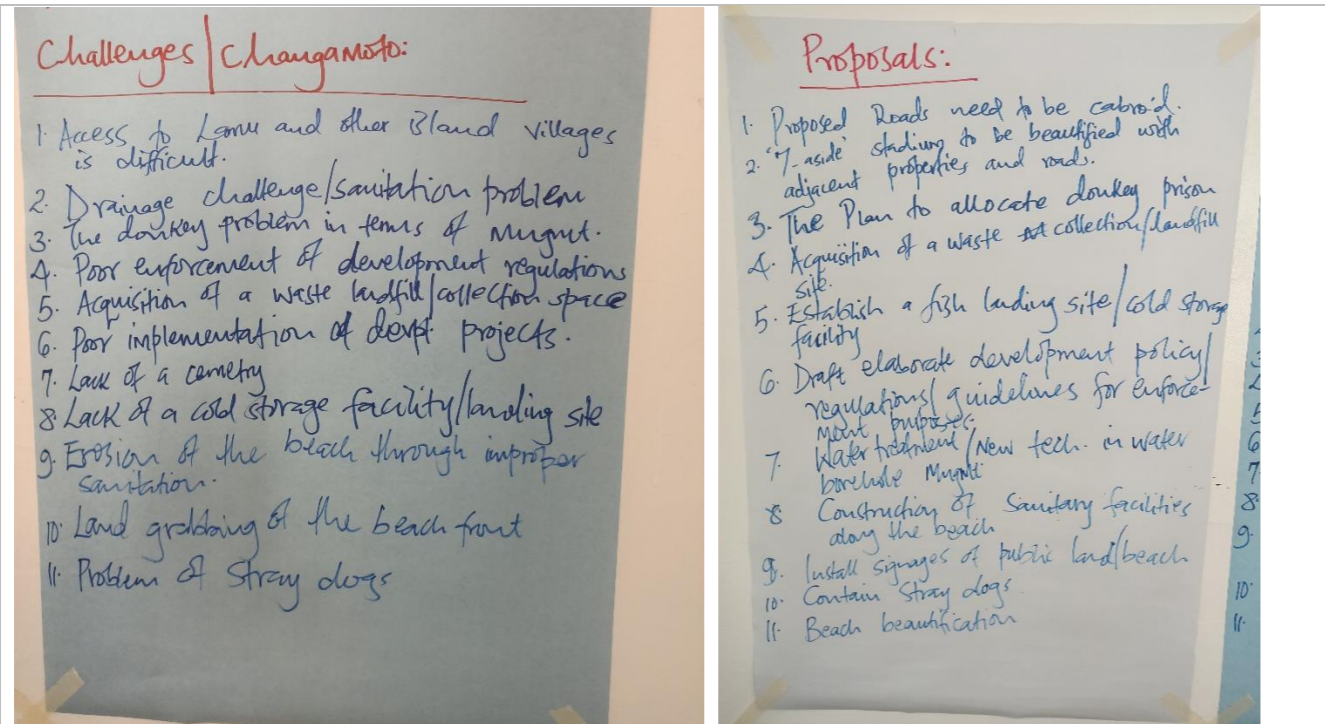 Challenges | Changamoto:
1. Access to Lamu and other island villages
is difficult.
2. Drainage challenge/sanitation problem
3. The donkey problem in terms of Mngmt.
4. Poor enforcement of development regulations
5. Acquisition of a waste landfill/collection space
6. Poor implementation of devpt projects.
7. Lack of a cemetry
8. Lack of a cold storage facility/landing site
9. Erosion of the beach through improper
sanitation.
10. Land grabbing of the beach front
11. Problem of Stray dogs
Proposals:
1. Proposed Roads need to be cabro'd.
2. '7-aside' stadium to be beautified with
adjacent properties and roads.
3. The Plan to allocate donkey prison
4. Acquisition of a waste collection/landfill
site.
5. Establish a fish landing site/cold storage
facility
6. Draft elaborate development policy/
regulations/guidelines for enforce-
ment purposes.
7. Water treatment/New tech. in water
borehole Mngmt
8 Construction of Sanitary facilities
along the beach
9. Install signages of public land/beach
10. Contain Stray dogs
11. Beach beautification
6
7
8
9.
10.
11.